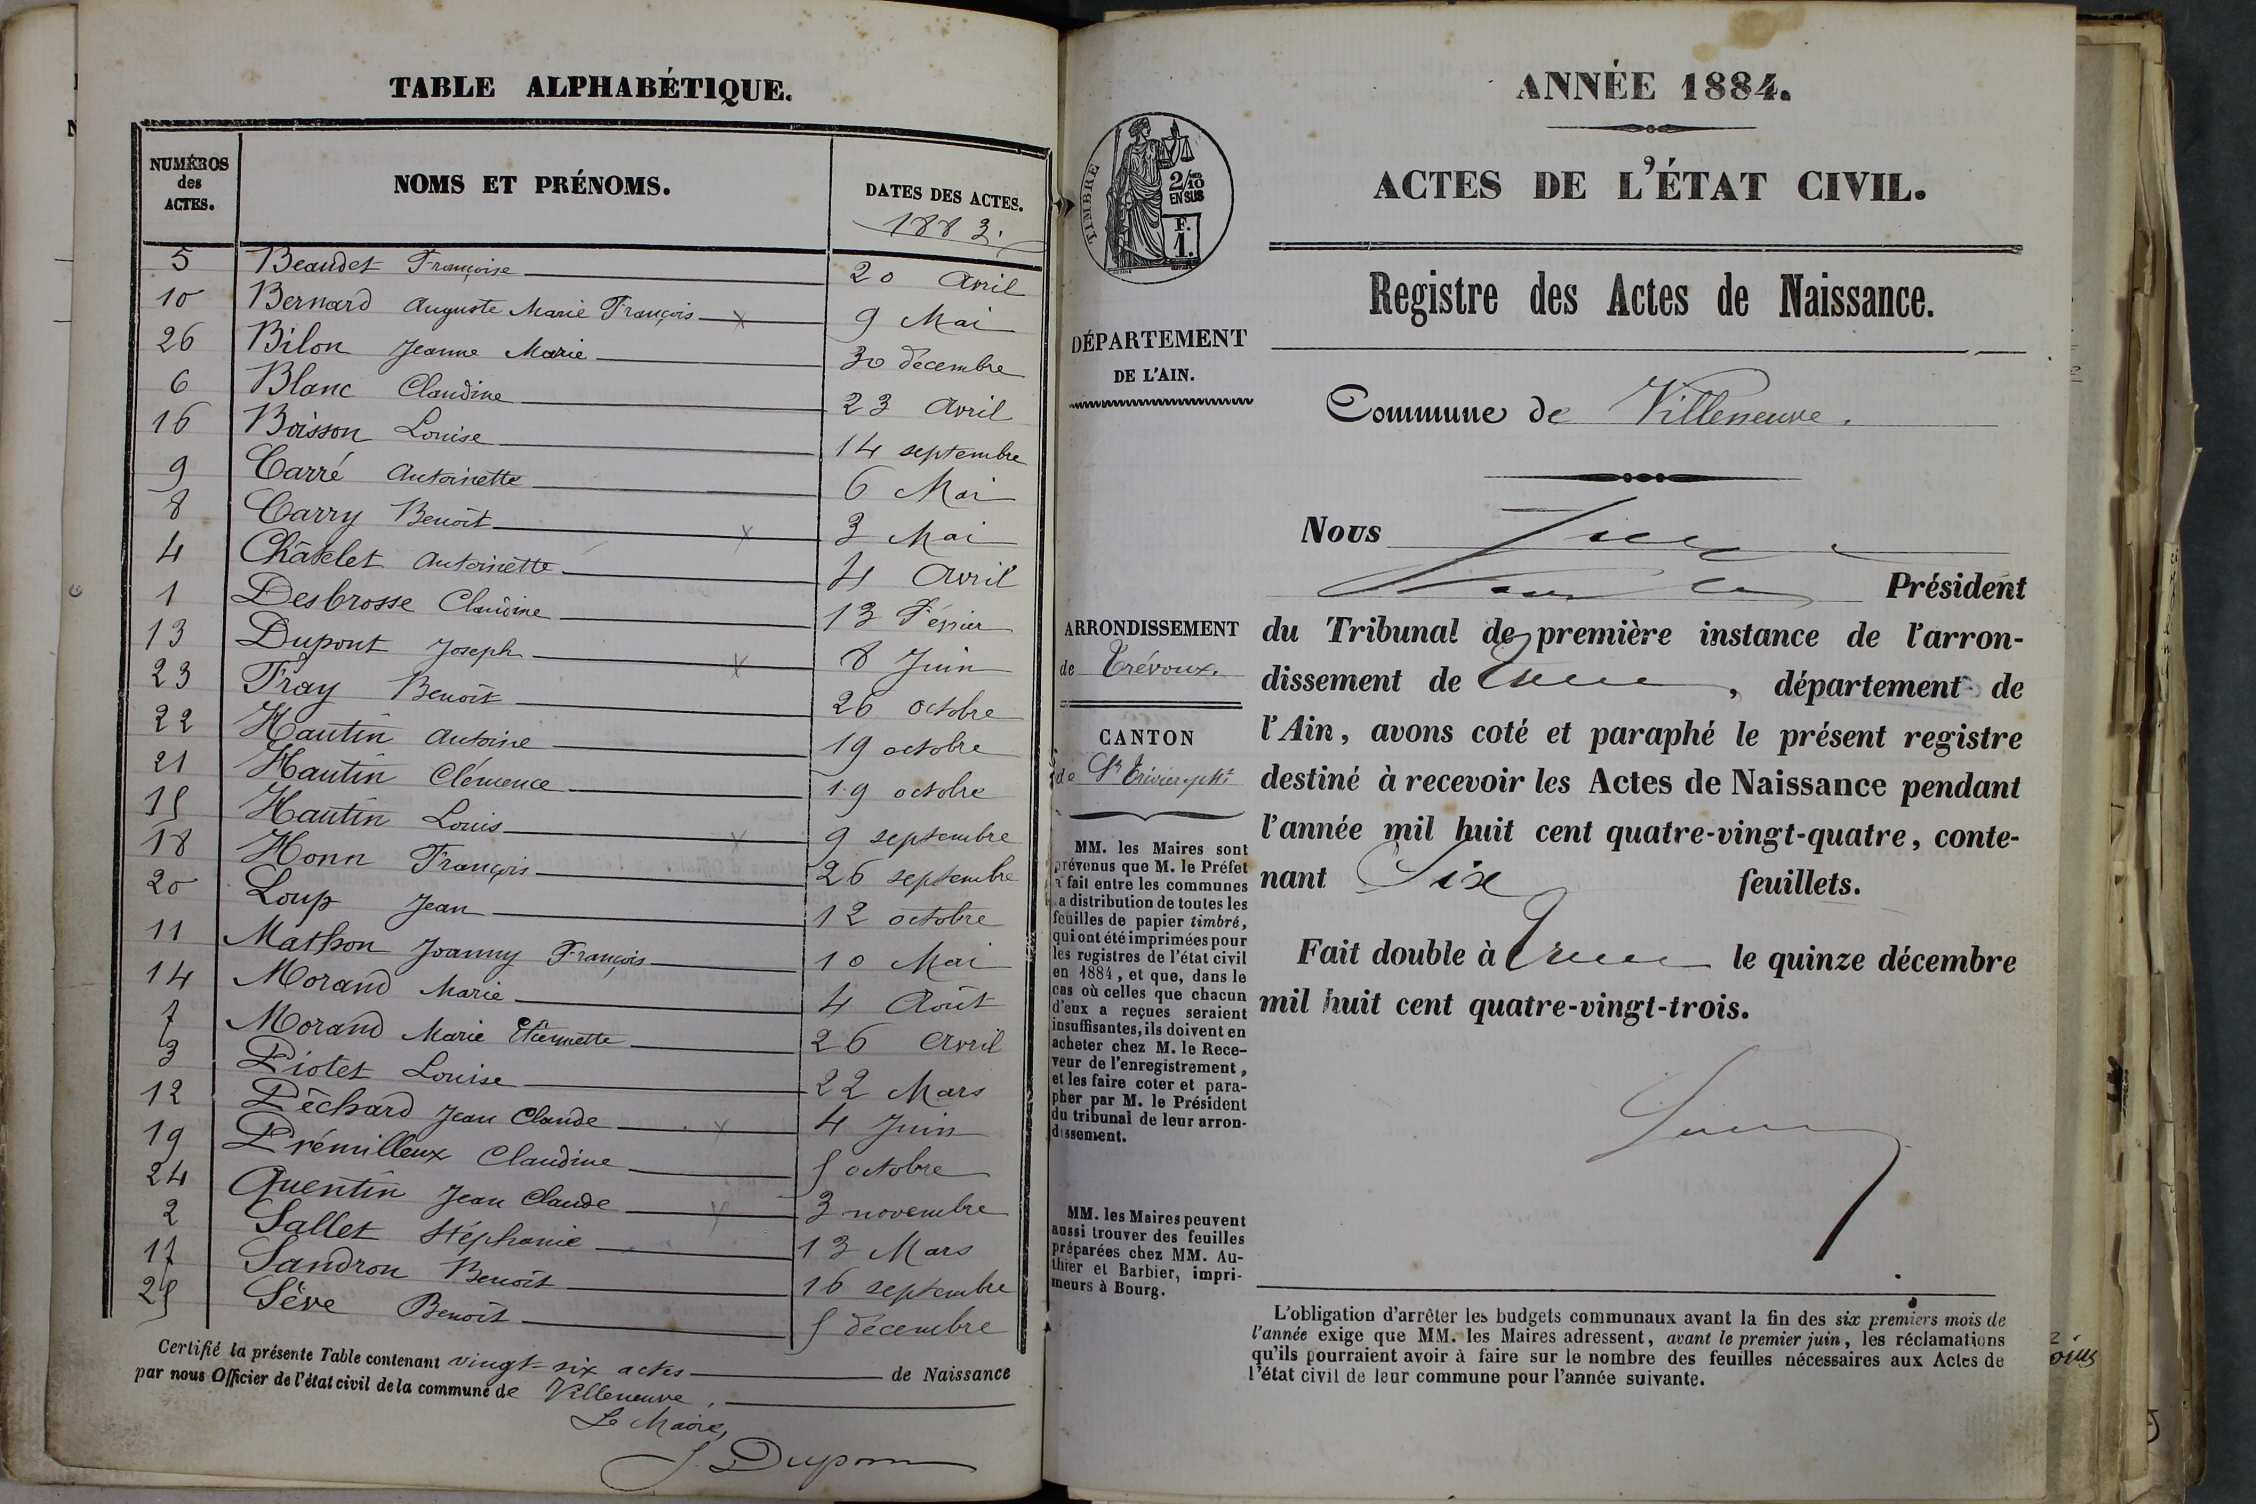 TABLE ALPHABÉTIQUE.
NUMÉROS des ACTES.
NOMS ET PRÉNOMS.
DATES DES ACTES.
1883.
5 Beaudet Françoise 20 Avril
10 Bernard Auguste Marie François x 9 Mai
26 Bilon Jeanne Marie 30 décembre
6 Blanc Claudine 23 Avril
16 Boisson Louise 14 septembre
9 Carré Antoinette 6 Mai
8 Carry Benoit x 3 Mai
4 Châtelet Antoinette 4 Avril
1 Desbrosse Claudine 13 Février
13 Dupont Joseph x 8 Juin
23 Fray Benoit 26 octobre
22 Hautin Antoine 19 octobre
21 Hautin Clémence 19 octobre
15 Hautin Louis x 9 septembre
18 Honn François 26 septembre
20 Loup Jean 12 octobre
11 Mathon Joanny François 10 Mai
14 Morand Marie 4 Août
7 Morand Marie Etiennette 26 Avril
3 Piotet Louise 22 Mars
12 Péchard Jean Claude x 4 Juin
19 Prémilleux Claudine 5 octobre
24 Quentin Jean Claude x 3 novembre
2 Sallet Stéphanie 13 Mars
17 Sandron Benoit 16 septembre
25 Sève Benoit 5 décembre
Certifié la présente Table contenant vingt-six actes de Naissance
par nous Officier de l'état civil de la commune de Villeneuve.
Le Maire,
J. Dupont
ANNÉE 1884.
ACTES DE L'ÉTAT CIVIL.
TIMBRE
2/10
EN SUS
F.
1.
Registre des Actes de Naissance.
DÉPARTEMENT
DE L'AIN.
Commune de Villeneuve.
Nous
Président
ARRONDISSEMENT
de Trévoux.
CANTON
de St Trivier
du Tribunal de première instance de l'arron-
dissement de , département de
l'Ain, avons coté et paraphé le présent registre
destiné à recevoir les Actes de Naissance pendant
l'année mil huit cent quatre-vingt-quatre, conte-
nant Six feuillets.
Fait double à le quinze décembre
mil huit cent quatre-vingt-trois.
MM. les Maires sont
prévenus que M. le Préfet
a fait entre les communes
la distribution de toutes les
feuilles de papier timbré,
qui ont été imprimées pour
les registres de l'état civil
en 1884, et que, dans le
cas où celles que chacun
d'eux a reçues seraient
insuffisantes, ils doivent en
acheter chez M. le Rece-
veur de l'enregistrement,
et les faire coter et para-
pher par M. le Président
du tribunal de leur arron-
dissement.
MM. les Maires peuvent
aussi trouver des feuilles
préparées chez MM. Au-
thier et Barbier, impri-
meurs à Bourg.
L'obligation d'arrêter les budgets communaux avant la fin des six premiers mois de
l'année exige que MM. les Maires adressent, avant le premier juin, les réclamations
qu'ils pourraient avoir à faire sur le nombre des feuilles nécessaires aux Actes de
l'état civil de leur commune pour l'année suivante.